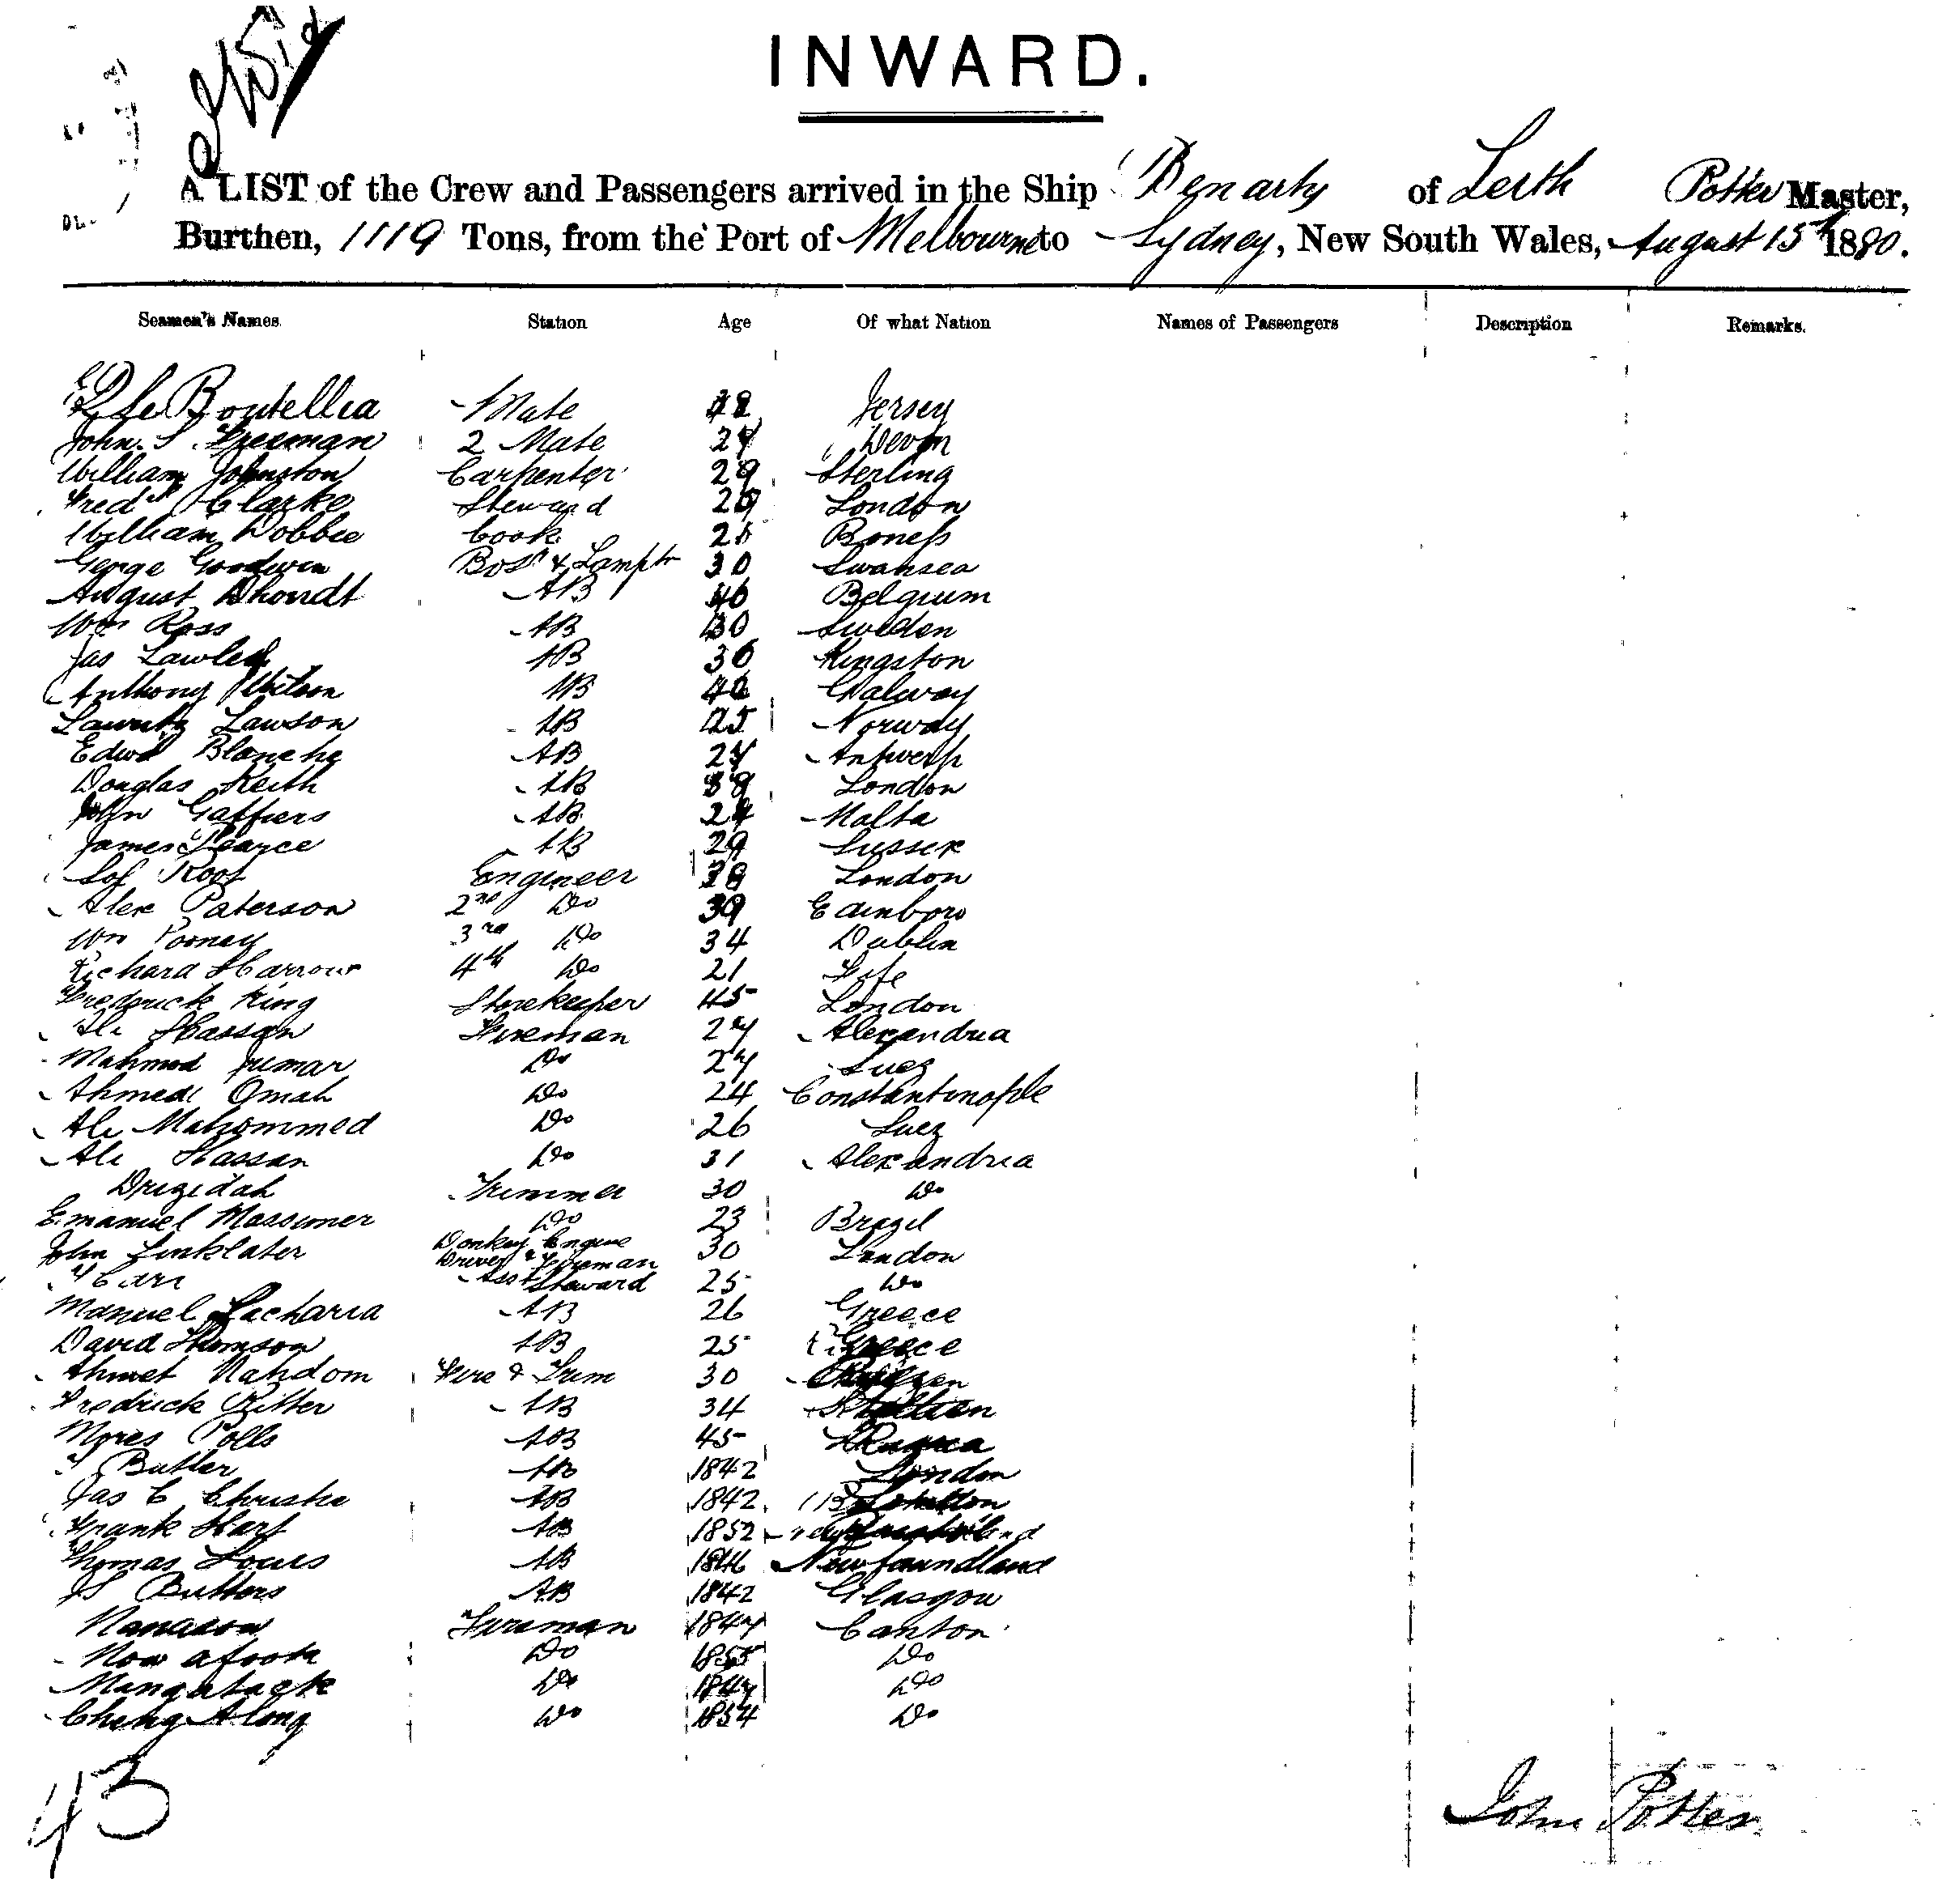 INWARD.
A LIST of the Crew and Passengers arrived in the Ship Benarty of Leith Potter Master,
Burthen, 1119 Tons, from the Port of Melbourne to Sydney, New South Wales, August 15th 1880.
Seamen's Names. Station Age Of what Nation Names of Passengers Description Remarks.
Le Boutellia Mate Jersey
John. S. Freeman 2 Mate 27 Devon
William Johnston Carpenter 29 Sterling
Fredk Clarke Steward London
William Dobbie Cook Boness
George Goodwin Bosn & Lamptr 30 Swansea
August Dhondt AB 46 Belgium
Wm Ross AB 30 Sweden
Jas AB 36 Kingston
Anthony Wilson AB 42 Galway
Lawson AB 25 Norway
Edwd Blanche AB 27 Antwerp
Douglas Keith AB 39 London
John Gaffiers AB 24 Malta
James Pearce AB 29 Sussex
Engineer 38 London
Alex Paterson 2nd Do 39 Edinboro
Wm 3rd Do 34 Dublin
Richard Harrower 4th Do 21 Fife
Frederick King Storekeeper 45 London
Ali Hassan Fireman 27 Alexandria
Mahmod Jumar Do 27 Suez
Ahmed Omah Do 24 Constantinople
Ali Mahommed Do 26 Suez
Ali Hassan Do 31 Alexandria
Drizidah Trimmer 30 Do
Emanuel Massimer Do 23 Brazil
John Linklater Donkey Engine 30 London
Driver & Fireman
F Carr Asst Steward 25 Do
Manuel Zacharia AB 26 Greece
David Thomson AB 25 Greece
Ahmet Nahdom Fire & Trim 30
Fredrick Ritter AB 34
Myres Polls AB 45
F Butler AB 1842 London
Jas C Christie AB 1842
Frank Hart AB 1852
Thomas Louis AB 1846 Newfoundland
Butters AB 1842 Glasgow
Fireman 1847 Canton
Now afook Do 1855 Do
Mingatack Do 1847 Do
Cheng Along Do 1854 Do
43
John Potter